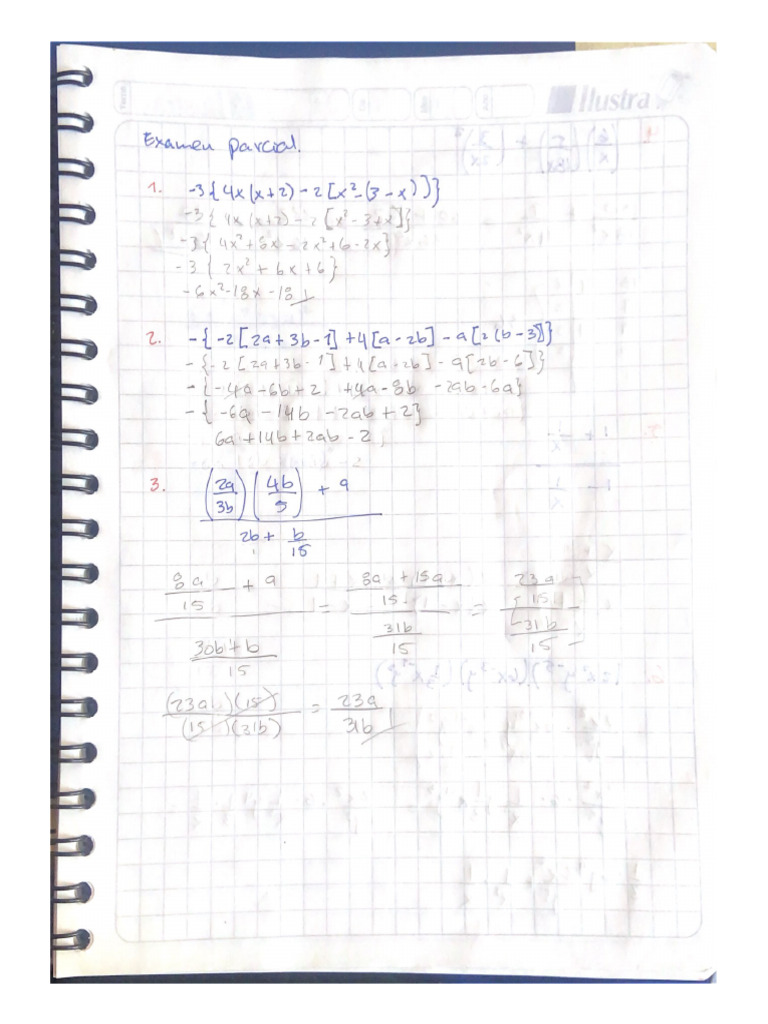 Ilustra
Examen parcial.
1. -3{4x(x+2)-2[x²-(3-x)]}
-3{4x(x+2)-2[x²-3+x]}
-3{4x²+8x-2x²+6-2x}
-3{2x²+6x+6}
-6x²-18x-18
2. -{-2[2a+3b-1]+4[a-2b]-a[2(b-3)]}
-{-2[2a+3b-1]+4[a-2b]-a[2b-6]}
-{-4a-6b+2 +4a-8b -2ab-6a}
-{-6a-14b-2ab+2}
6a+14b+2ab-2
3. (2a/3b)(4b/5) + a
2b + b/15
8a/15 + a = 8a+15a/15 = 23a/15
30b+b/15 31b/15 31b/15
(23a)(15)/(15)(31b) = 23a/31b